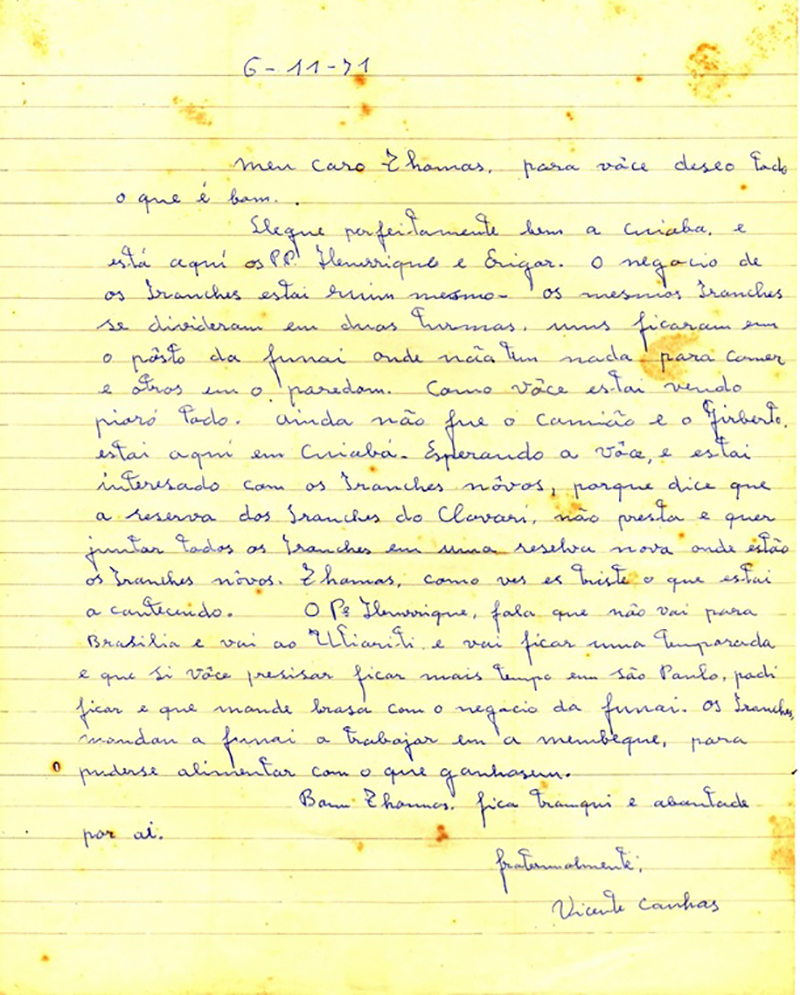 6-11-71
Meu caro Thomas, para vôce deseo tado
o que é bom. .
Llegue perfeitamente bem a Cuiaba, e
está aquí os P.P. Henrrique e Erigar. O negocio de
os Iranches estai ruim mesmo- os mesmos Iranches
se divideram em duas turmas, uns ficaram em
o pôsto da funai onde não tem nada para comer
e otros em o paredom. Como vôce estai vendo
pioró tado. Ainda não fue o camião e o Girberto,
estai aquí em Cuiabá. Esperando a vôce, e estai
interesado com os Iranches nôvos, porque dice que
a reserva dos Iranches do Clavari, não presta e quer
juntar tados os Iranches em uma reselva nova onde estão
os Iranches nôvos. Thomas, como ves es triste o que estai
a cantecendo. O Pe Henrrique, fala que não vai para
Brasilia e vai ao Utiariti e vai ficar uma temporada
e que si vôce presisar ficar mais tempo em são Paulo, padi
ficar e que mande brasa com o negacio da funai. Os Iranches,
mandan a funai a trabajar em a membeque, para
puderse alimentar com o que ganhasem.
Bom Thomas, fica tranqui e abantade
por ai.
fraternalmente,
Vicente Canhas